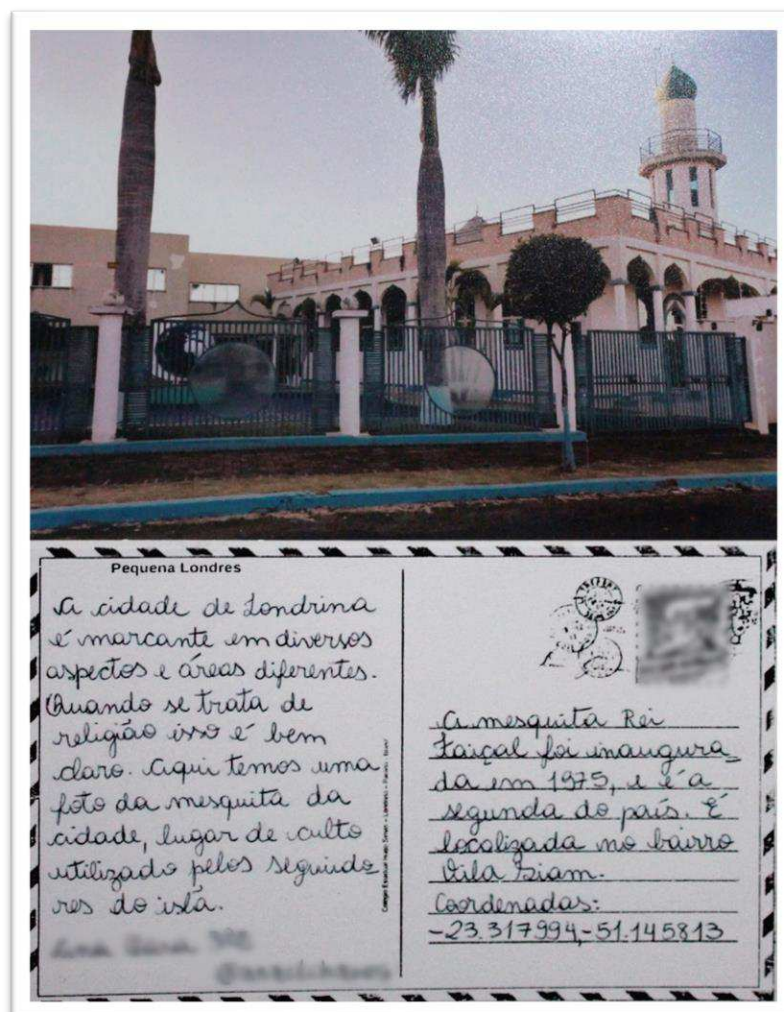 Pequena Londres
A cidade de Londrina
é marcante em diversos
aspectos e áreas diferentes.
Quando se trata de
religião isso é bem
claro. Aqui temos uma
foto da mesquita da
cidade, lugar de culto
utilizado pelos seguido
res do islã.
A mesquita Rei
Faiçal foi inaugura_
da em 1975, e é a
segunda do país. É
localizada no bairro
Vila Siam.
Coordenadas:
-23.317994,-51.145813